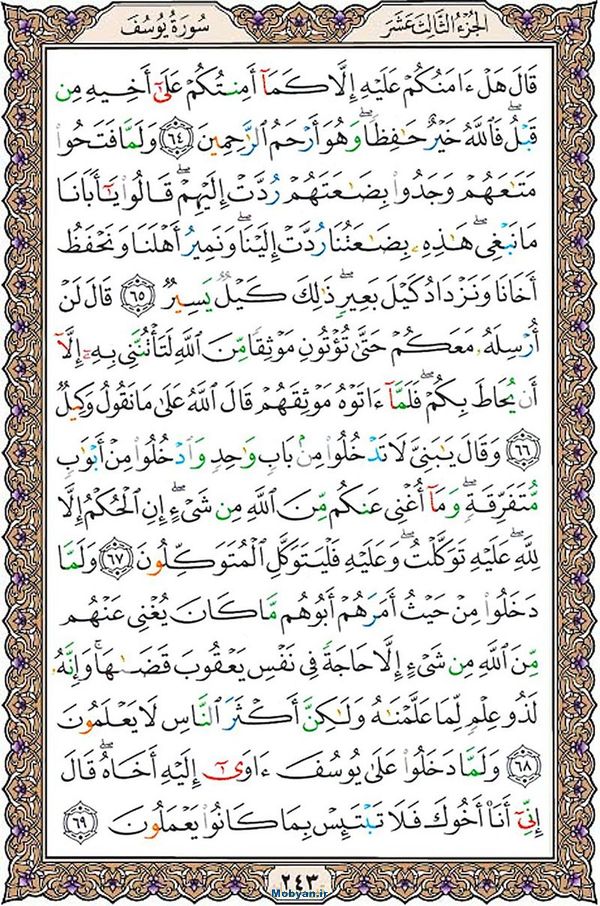 الجُزْءُ الثَّالِثَ عَشَرَ
سُورَةُ يُوسُفَ
قَالَ هَلْ ءَامَنُكُمْ عَلَيْهِ إِلَّا كَمَآ أَمِنتُكُمْ عَلَىٰٓ أَخِيهِ مِن
قَبْلُ ۖ فَٱللَّهُ خَيْرٌ حَٰفِظًا ۖ وَهُوَ أَرْحَمُ ٱلرَّٰحِمِينَ ٦٤ وَلَمَّا فَتَحُوا۟
مَتَٰعَهُمْ وَجَدُوا۟ بِضَٰعَتَهُمْ رُدَّتْ إِلَيْهِمْ ۖ قَالُوا۟ يَٰٓأَبَانَا
مَا نَبْغِى ۖ هَٰذِهِۦ بِضَٰعَتُنَا رُدَّتْ إِلَيْنَا ۖ وَنَمِيرُ أَهْلَنَا وَنَحْفَظُ
أَخَانَا وَنَزْدَادُ كَيْلَ بَعِيرٍ ۖ ذَٰلِكَ كَيْلٌ يَسِيرٌ ٦٥ قَالَ لَنْ
أُرْسِلَهُۥ مَعَكُمْ حَتَّىٰ تُؤْتُونِ مَوْثِقًا مِّنَ ٱللَّهِ لَتَأْتُنَّنِى بِهِۦٓ إِلَّآ
أَن يُحَاطَ بِكُمْ ۖ فَلَمَّآ ءَاتَوْهُ مَوْثِقَهُمْ قَالَ ٱللَّهُ عَلَىٰ مَا نَقُولُ وَكِيلٌ
٦٦ وَقَالَ يَٰبَنِىَّ لَا تَدْخُلُوا۟ مِنۢ بَابٍ وَٰحِدٍ وَٱدْخُلُوا۟ مِنْ أَبْوَٰبٍ
مُّتَفَرِّقَةٍ ۖ وَمَآ أُغْنِى عَنكُم مِّنَ ٱللَّهِ مِن شَىْءٍ ۖ إِنِ ٱلْحُكْمُ إِلَّا
لِلَّهِ ۖ عَلَيْهِ تَوَكَّلْتُ ۖ وَعَلَيْهِ فَلْيَتَوَكَّلِ ٱلْمُتَوَكِّلُونَ ٦٧ وَلَمَّا
دَخَلُوا۟ مِنْ حَيْثُ أَمَرَهُمْ أَبُوهُم مَّا كَانَ يُغْنِى عَنْهُم
مِّنَ ٱللَّهِ مِن شَىْءٍ إِلَّا حَاجَةً فِى نَفْسِ يَعْقُوبَ قَضَىٰهَا ۚ وَإِنَّهُۥ
لَذُو عِلْمٍ لِّمَا عَلَّمْنَٰهُ وَلَٰكِنَّ أَكْثَرَ ٱلنَّاسِ لَا يَعْلَمُونَ
٦٨ وَلَمَّا دَخَلُوا۟ عَلَىٰ يُوسُفَ ءَاوَىٰٓ إِلَيْهِ أَخَاهُ ۖ قَالَ
إِنِّىٓ أَنَا۠ أَخُوكَ فَلَا تَبْتَئِسْ بِمَا كَانُوا۟ يَعْمَلُونَ ٦٩
٢٤٣
Mobyan.ir